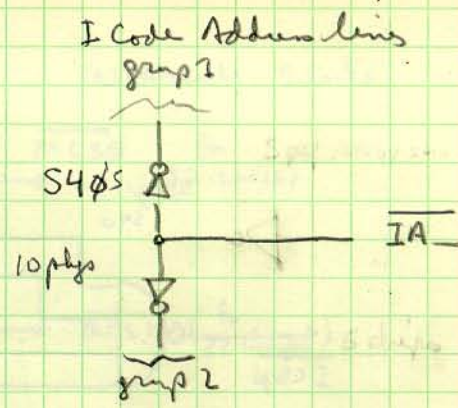 I Code Address lines
group 1
S4φs
IA_
10 pkgs
group 2